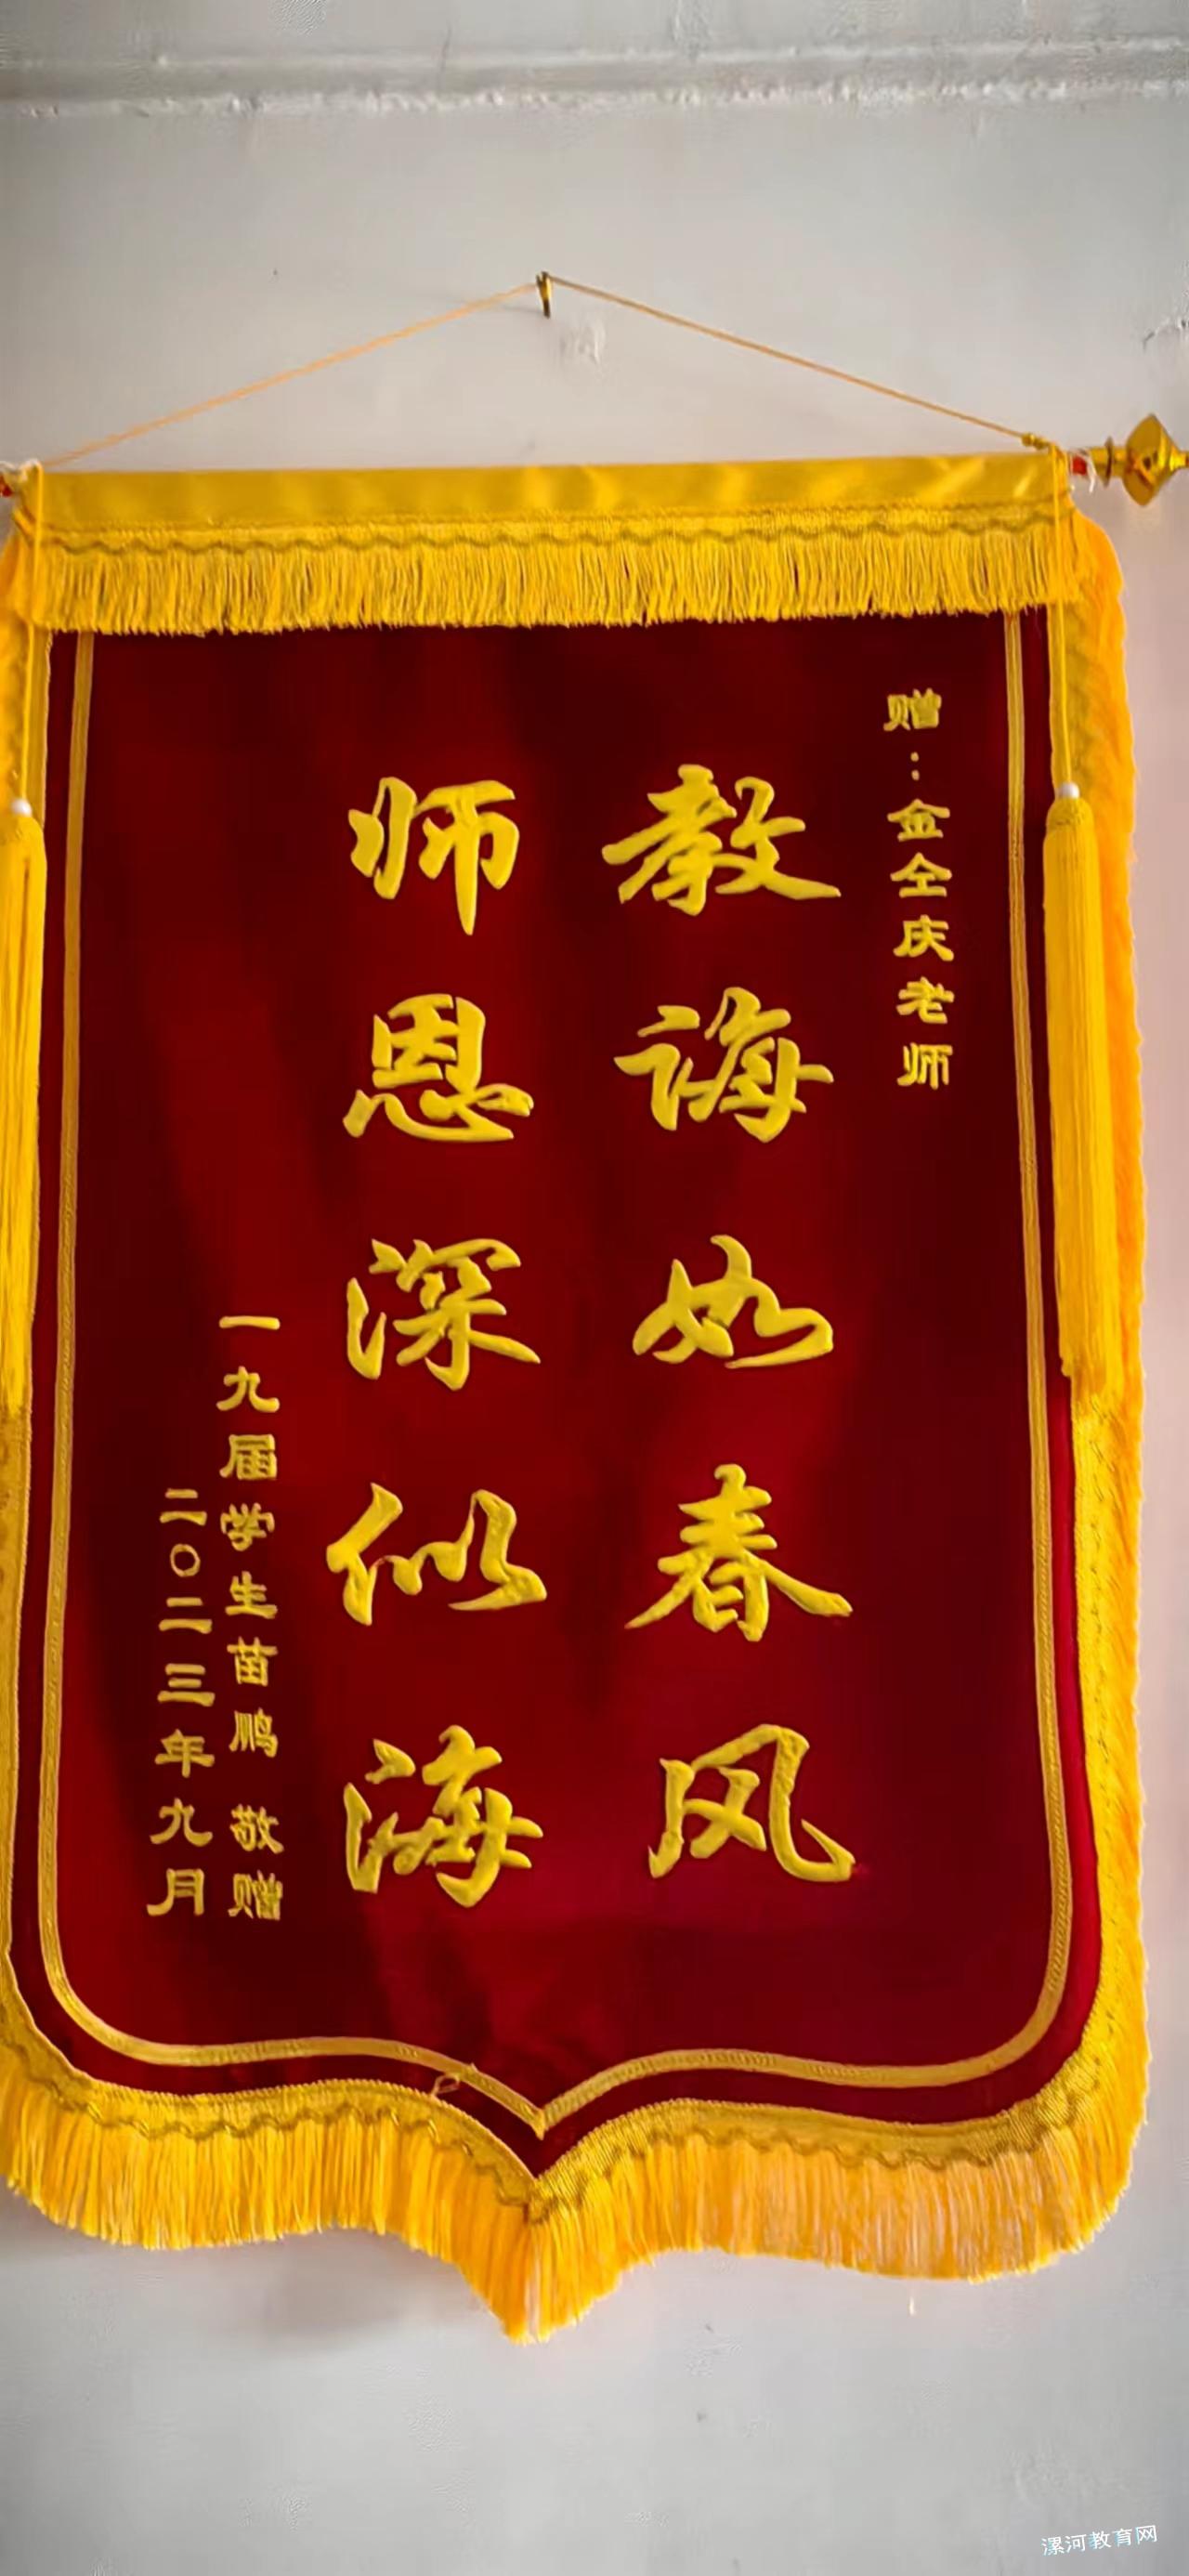 赠：金全庆老师
教诲如春风
师恩深似海
一九届学生苗鹏 敬赠
二〇二三年九月
漯河教育网